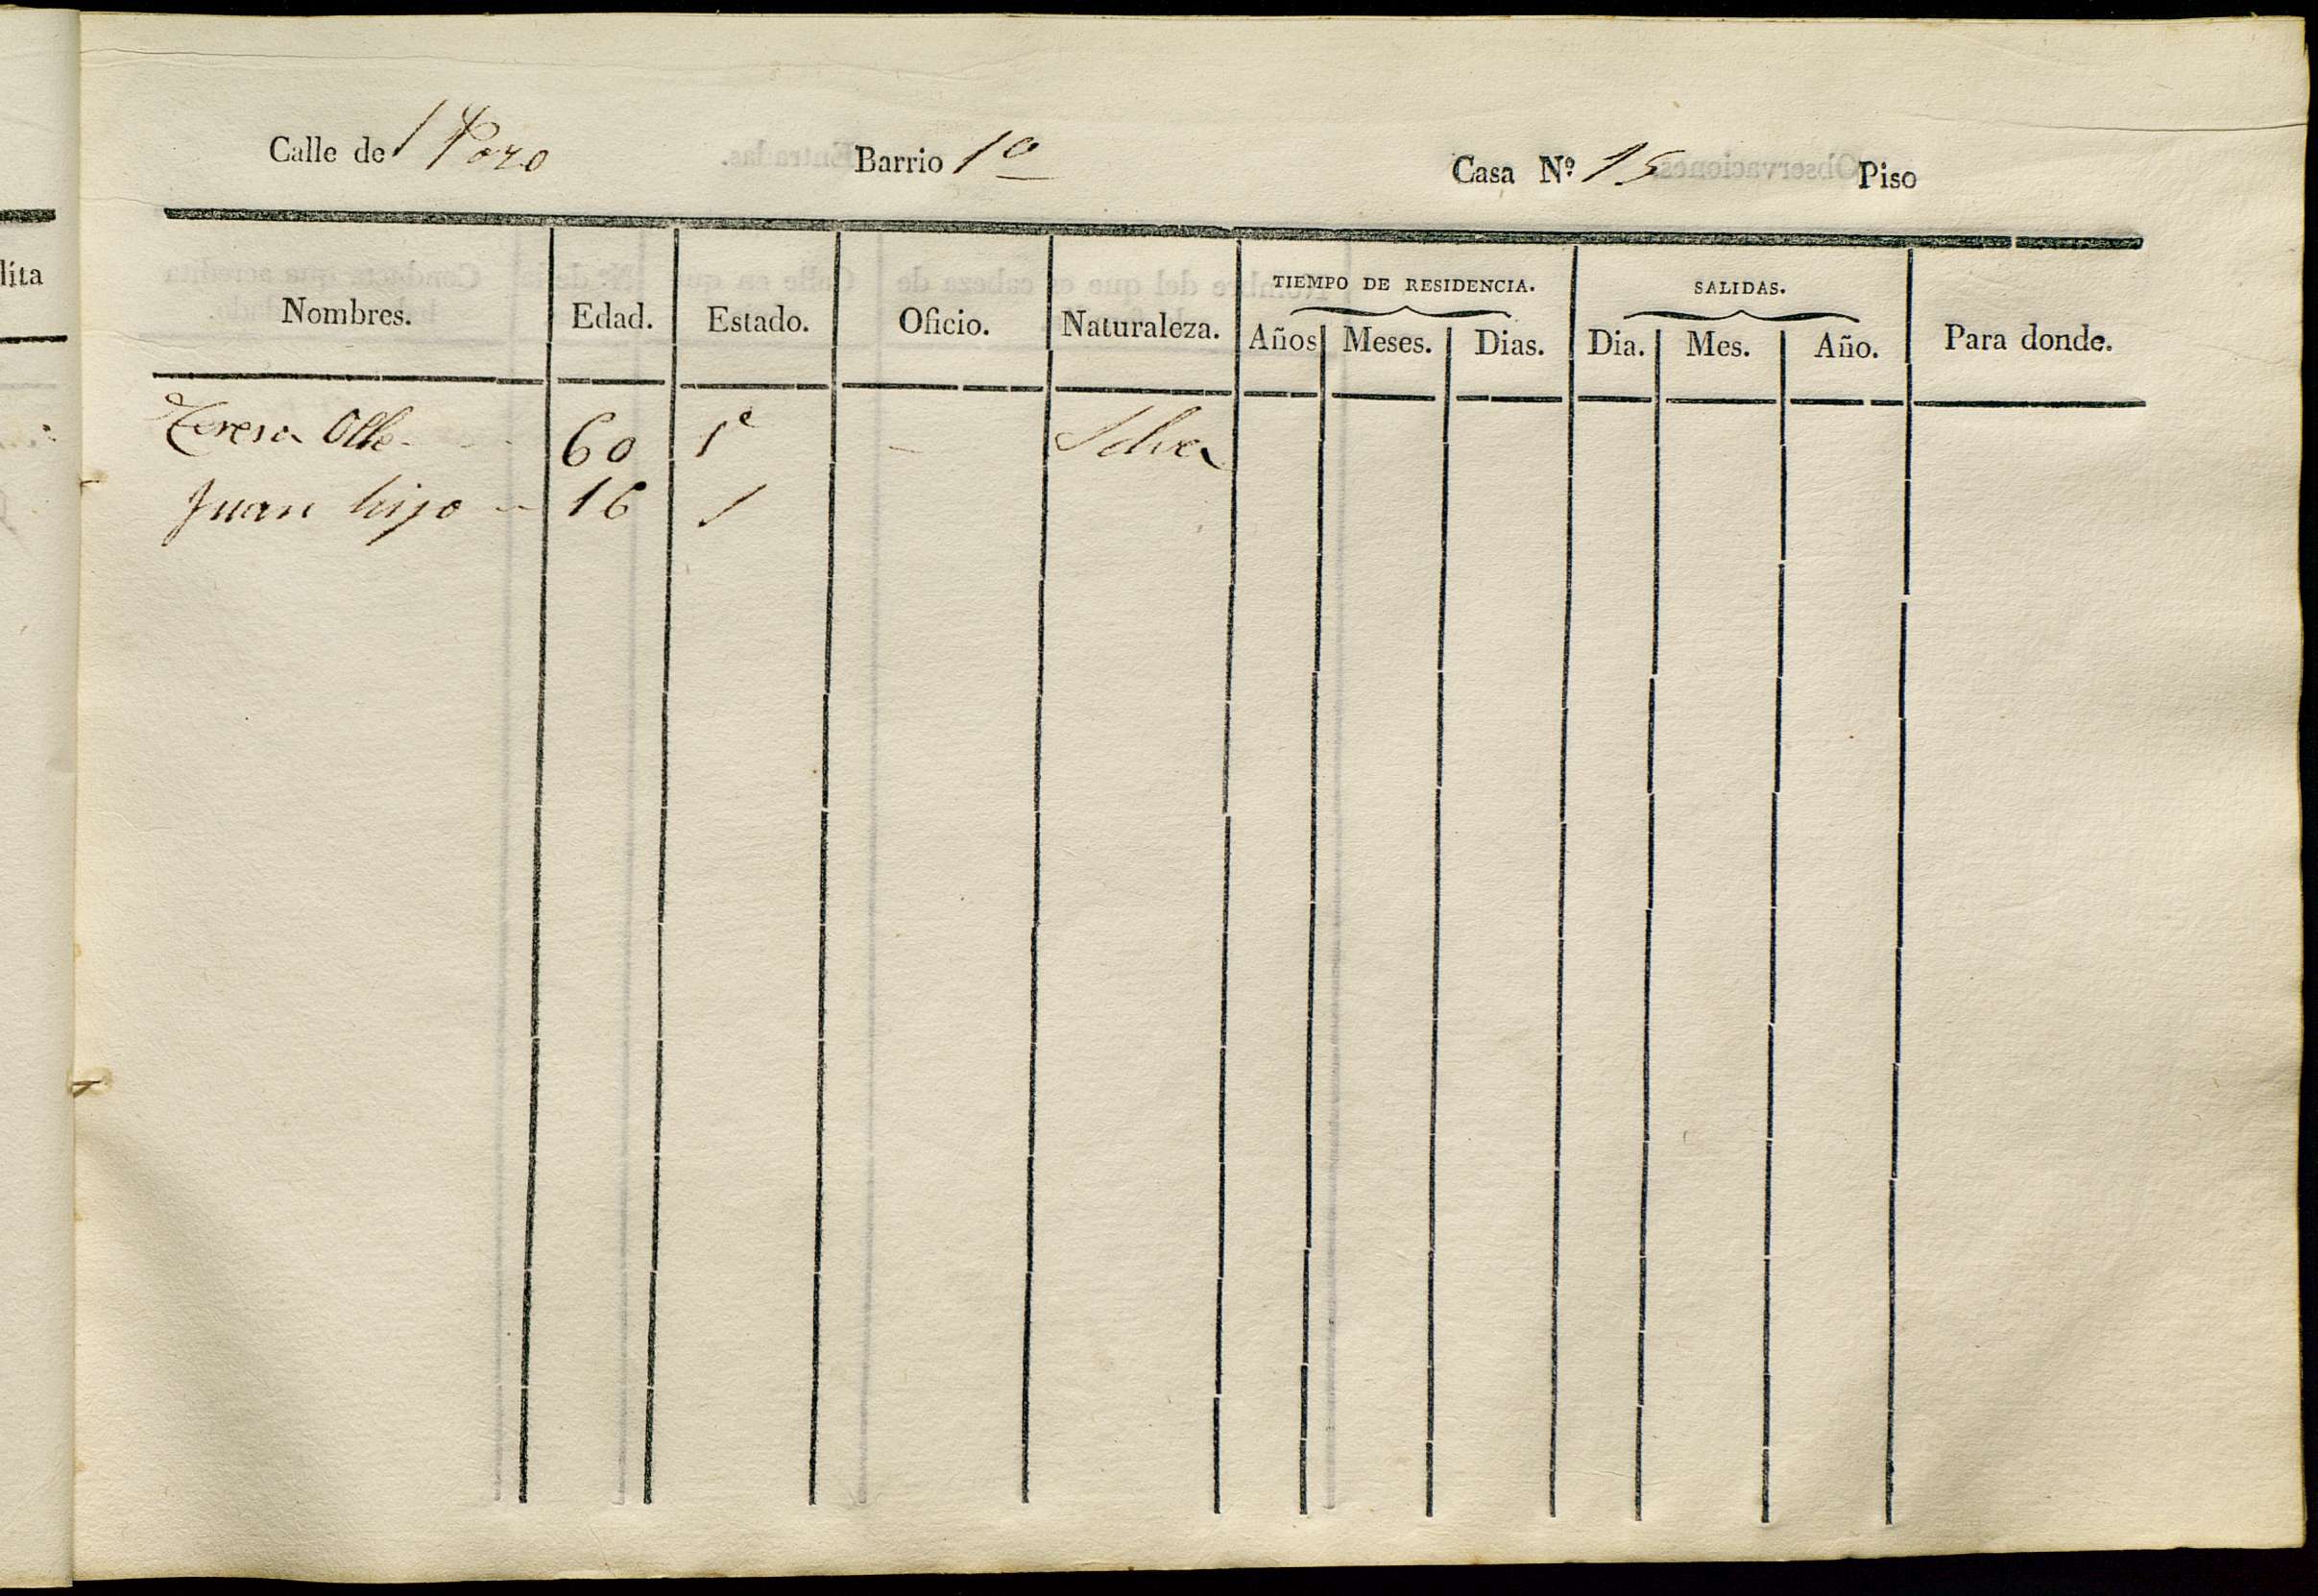 Calle del Pozo Barrio 1º Casa Nº 15 Piso
lita
Nombres. Edad. Estado. Oficio. Naturaleza. TIEMPO DE RESIDENCIA. Años Meses. Dias. SALIDAS. Dia. Mes. Año. Para donde.
Teresa Olle - - 60 Sª - Selva
Juan hijo - 16 S